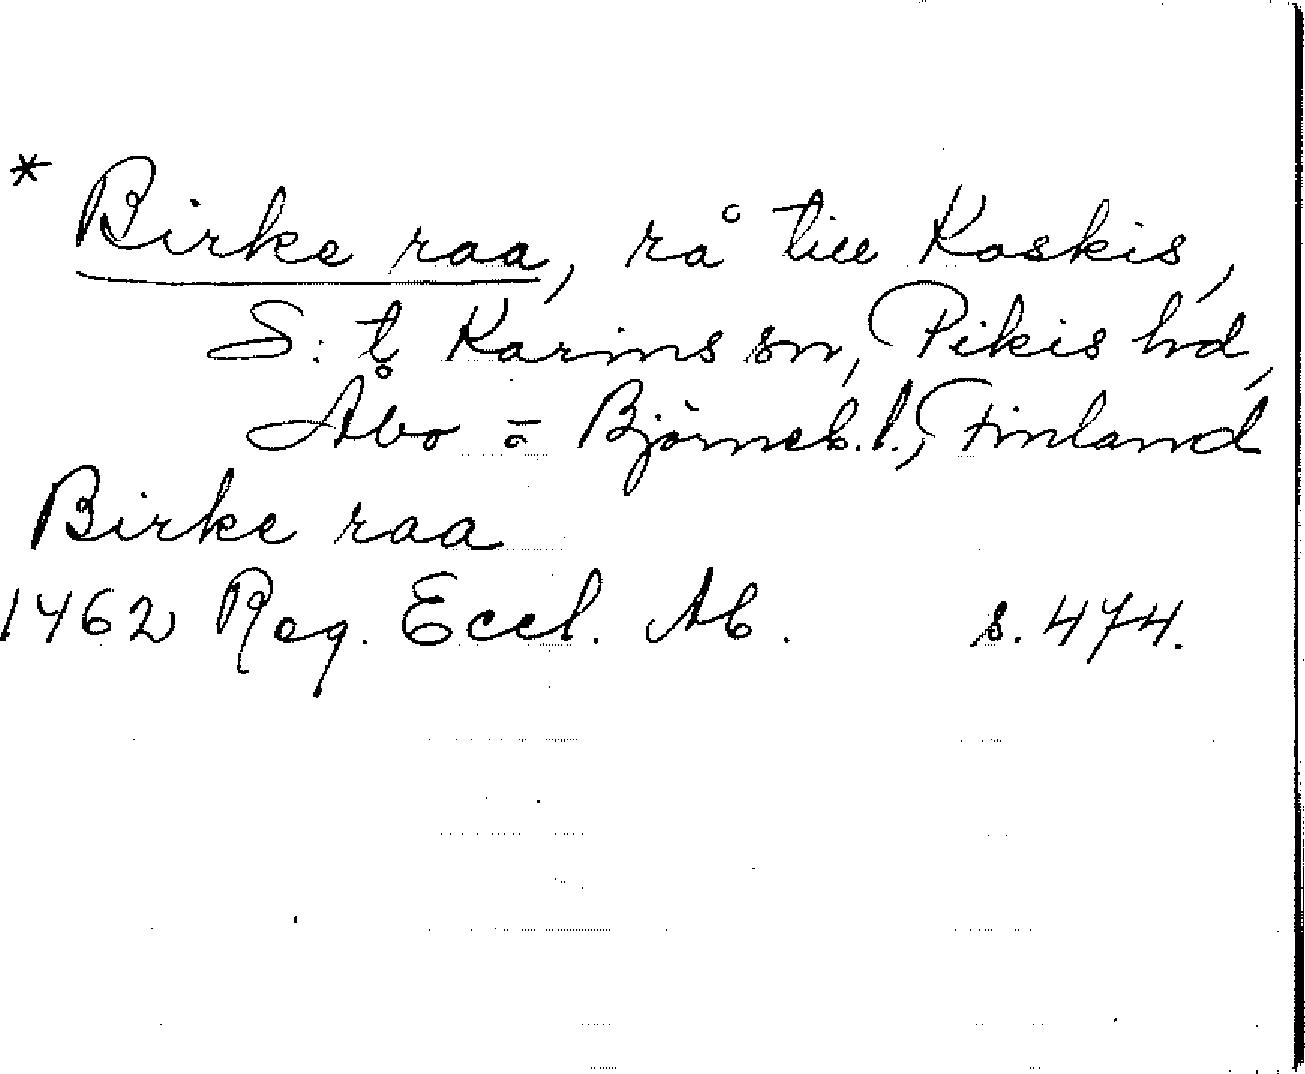 * Birke raa, rå till Koskis,
S:t Karins sn, Pikis hd,
Åbo o. Björneb. l., Finland
Birke raa
1462 Reg. Eccl. Ab. s. 474.